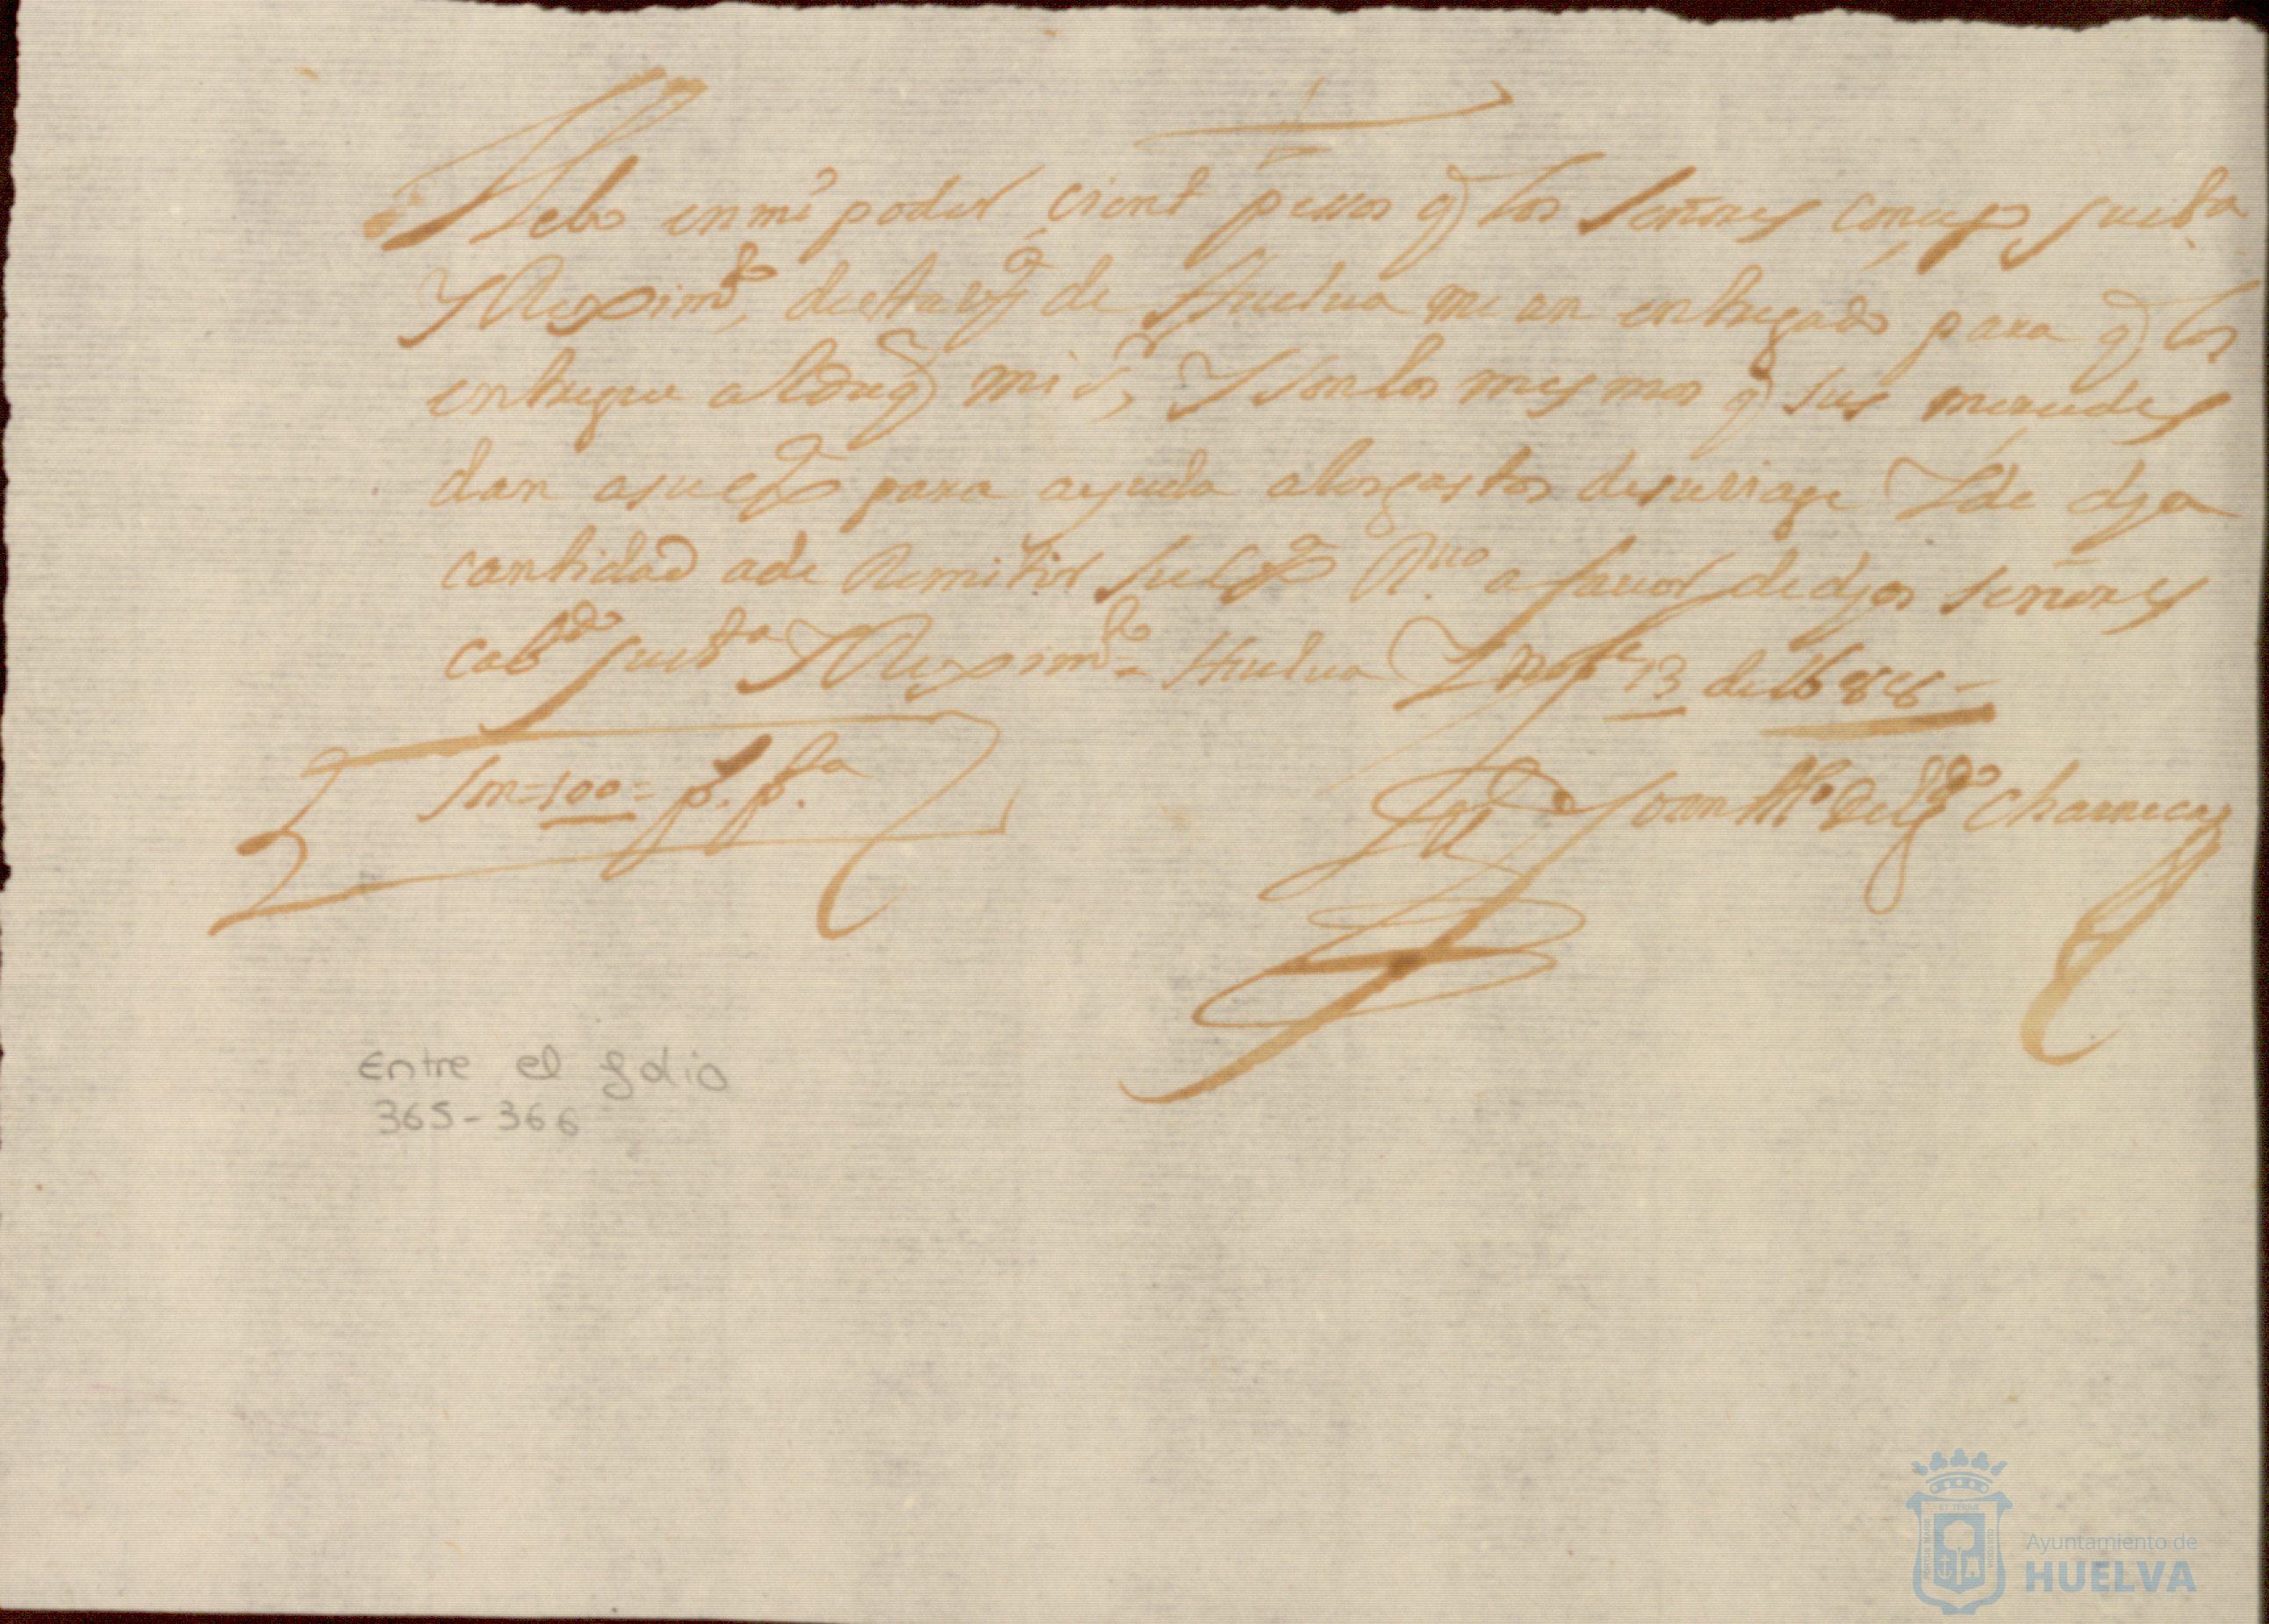 llebo en mi poder, cient pessos q los señores conxº Justª
Y Reximᵗᵒ, de esta vª de Huelua me an entregado para q los
entregue al duq mi Sʳ, Y son los mesmos q sus mercedes
dan a su exª para ayuda a los gastos de su viage Y de dha
cantidad a de Remitir su exª Rᵛᵒ a fauor de dhos señores
cabᵈᵒ Justª Y Reximᵗᵒ - Huelua Y 13 de 1688 -
Son = 100 = p. pᵗᵃ
Joan Delgᵈᵒ
Entre el folio
365-366
Ayuntamiento de
HUELVA